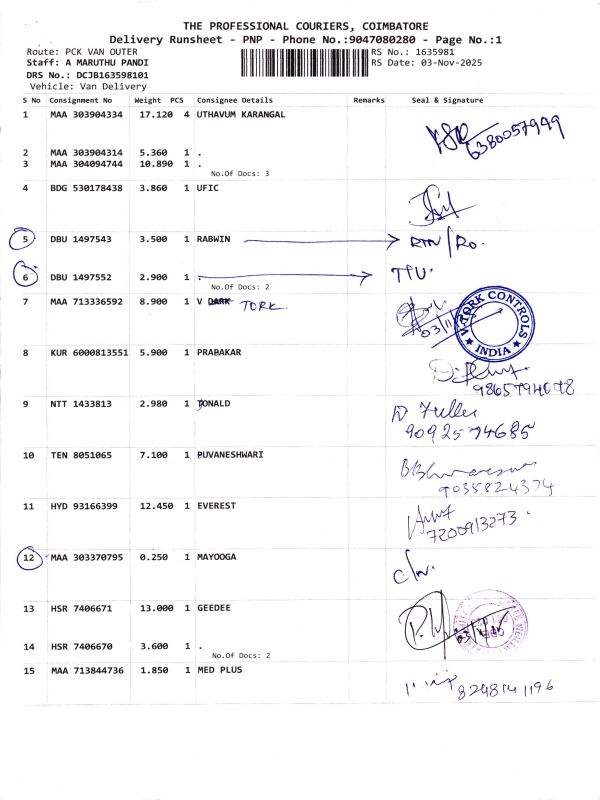 THE PROFESSIONAL COURIERS, COIMBATORE
Delivery Runsheet - PNP - Phone No.:9047080280 - Page No.:1
Route: PCK VAN OUTER RS No.: 1635981
Staff: A MARUTHU PANDI RS Date: 03-Nov-2025
DRS No.: DCJB163598101
Vehicle: Van Delivery
S No Consignment No Weight PCS Consignee Details Remarks Seal & Signature
1 MAA 303904334 17.120 4 UTHAVUM KARANGAL
6380057949
2 MAA 303904314 5.360 1 .
3 MAA 304094744 10.890 1 .
No.Of Docs: 3
4 BDG 530178438 3.860 1 UFIC
5 DBU 1497543 3.500 1 RABWIN RTN/RO.
6 DBU 1497552 2.900 1 .
No.Of Docs: 2
7 MAA 713336592 8.900 1 V DARK TORK
V-TORK CONTROLS
INDIA
8 KUR 6000813551 5.900 1 PRABAKAR
9865794078
9 NTT 1433813 2.980 1 DONALD
9092574685
10 TEN 8051065 7.100 1 PUVANESHWARI
9035824374
11 HYD 93166399 12.450 1 EVEREST
7200913273.
12 MAA 303370795 0.250 1 MAYOOGA
13 HSR 7406671 13.000 1 GEEDEE
14 HSR 7406670 3.600 1 .
No.Of Docs: 2
15 MAA 713844736 1.850 1 MED PLUS
8248141196